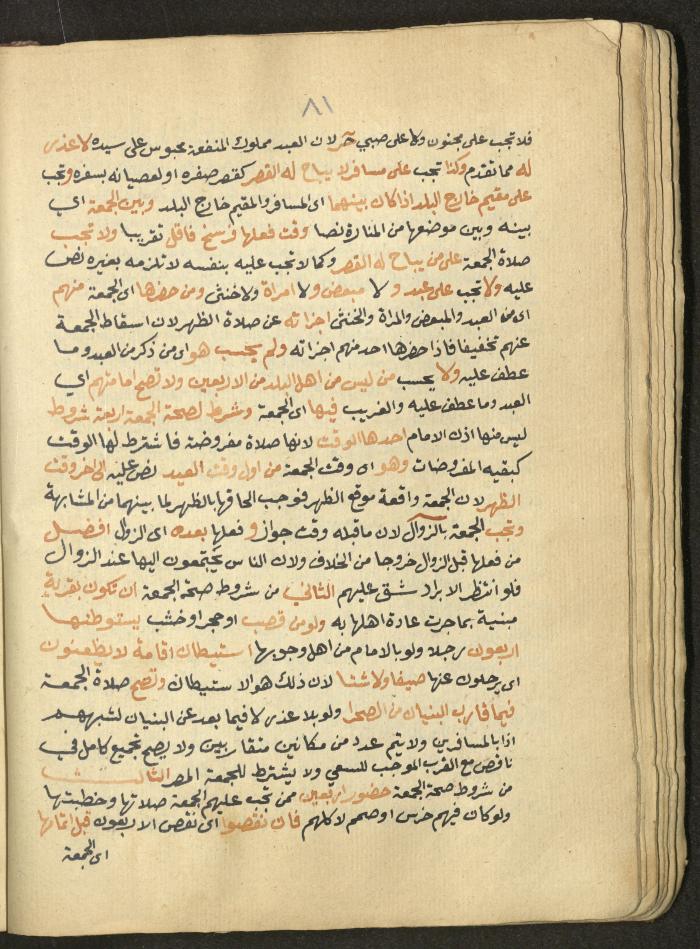 ٨١
فلا تجب على مجنون ولا على صبي حر لان العبد مملوك المنفعة محبوس على سيده لا عذر
له مما تقدم وكذا تجب على مسافر لا يباح له القصر كقصر سفره او لعصيانه بسفره وتجب
على مقيم خارج البلد اذا كان بينهما اى المسافر والمقيم خارج البلد وبين الجمعة اي
بينه وبين موضعها من المنارة نصا وقت فعلها فرسخ فاقل تقريبا ولا تجب
صلاة الجمعة على من يباح له القصر وكما لا تجب عليه بنفسه لا تلزمه بغيره نص
عليه ولا تجب على عبد ولا مبعض ولا امراة ولا خنثى ومن حضرها اى الجمعة منهم
اى من العبد والمبعض والمراة والخنثى اجزاته عن صلاة الظهر لان اسقاط الجمعة
عنهم تخفيفا فاذا حضرها احد منهم اجزاته ولم يحسب هو اى من ذكر من العبد وما
عطف عليه ولا يحسب من ليس من اهل البلد من الاربعين ولا تصح امامتهم اي
العبد وما عطف عليه والغريب فيها اى الجمعة وشرط لصحة الجمعة اربعة شروط
ليس منها اذن الامام احدها الوقت لانها صلاة مفروضة فاشترط لها الوقت
كبقيه المفروضات وهو اى وقت الجمعة من اول وقت العيد نص عليه الى اخر وقت
الظهر لان الجمعة واقعة موقع الظهر فوجب الحاقها بالظهر لما بينهما من المشابهة
وتجب الجمعة بالزوال لان ما قبله وقت جواز وفعلها بعده اى الزوال افضل
من فعلها قبل الزوال خروجا من الخلاف ولان الناس يجتمعون اليها عند الزوال
فلو انتظر الابراد شق عليهم الثاني من شروط صحة الجمعة ان تكون بقرية
مبنية بما جرت عادة اهلها به ولو من قصب او حجر او خشب يستوطنها
اربعون رجلا ولو بالامام من اهل وجوبها استيطان اقامة لا يظعنون
اى يرحلون عنها صيفا ولا شتا لان ذلك هو الاستيطان وتصح صلاة الجمعة
فيما قارب البنيان من الصحرا ولو بلا عذر لا فيما بعد عن البنيان لشبههم
اذا بالمسافرين ولا يتم عدد من مكانين متقاربين ولا يصح تجميع كامل في
ناقص مع القرب الموجب للسعي ولا يشترط للجمعة المصر الثالث
من شروط صحة الجمعة حضور اربعين ممن تجب عليهم الجمعة صلاتها وخطبتها
ولو كان فيهم خرس او صمم لا كلهم فان نقصوا اى نقص الاربعون قبل اتمامها
اى الجمعة